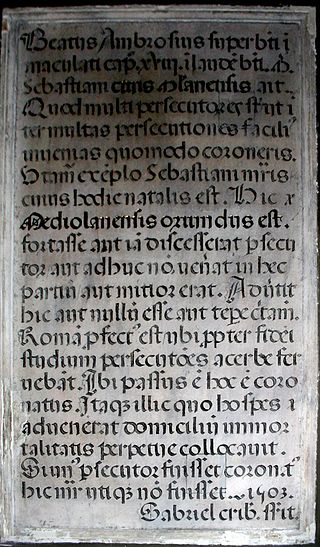 Beatus Ambrosius super bti i
maculati cap. xviii. i laudē bti. M.
Sebastiani civis Mlanensis. ait.
Quod multi persecutores sunt i
ter multas persecutiones facili'
invenias quomodo coroneris.
Utam exēplo Sebastiani mris
cuius hodie natalis est. Hic x
Mediolanensis oriundus est.
fortasse aut iā discesserat psecu
tor aut adhuc nō venat in hec
partiū aut mitior erat. Advtit
hic aut nullū esse aut tepectam.
Romā pfect' est ubi ppter fidei
studium persecutōes acerbe fer
vebāt. Ibi passus ē hoc ē coro
natus. Itaqz illic quo hospes i
advenerat domicilium immor
talitatis perpetue collocavit.
Si un' psecutor fuisset coron.t'
hic mr utiqz nō fuisset. 1503.
Gabriel crib. sstit.